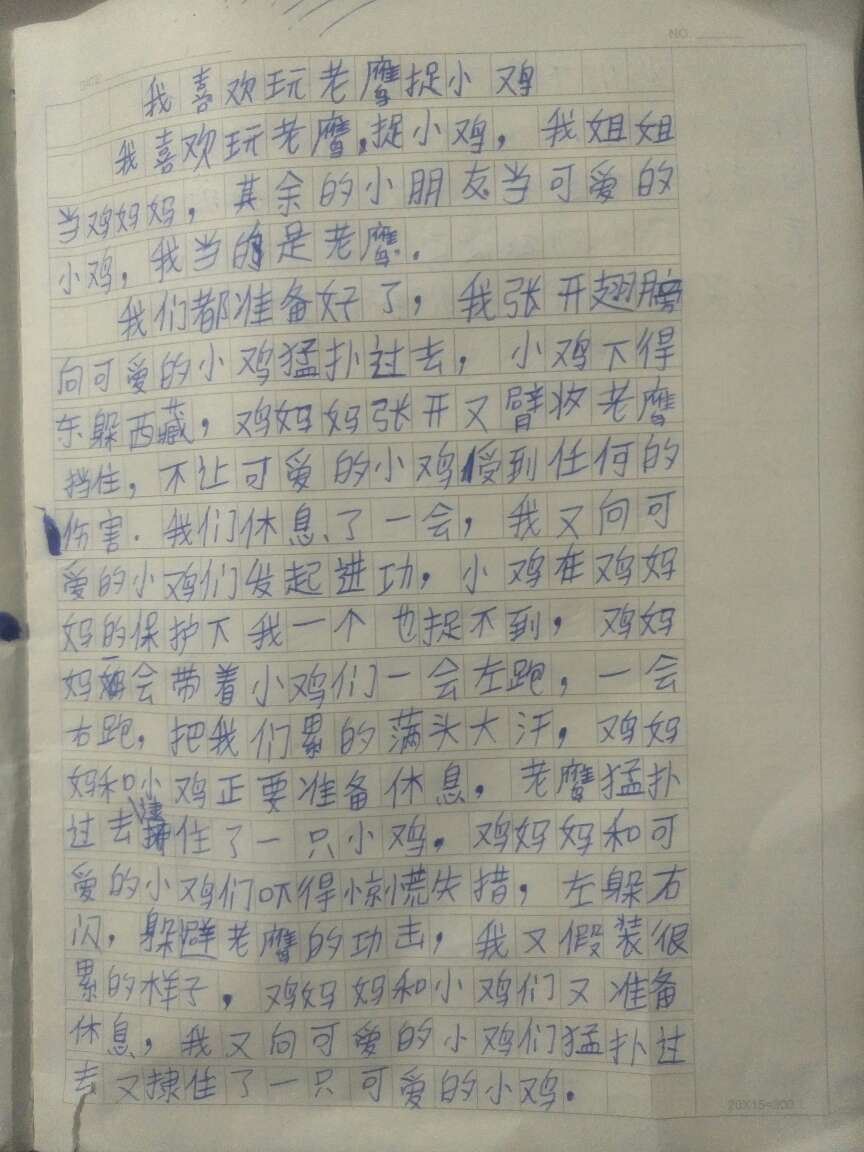 NO.
我喜欢玩老鹰捉小鸡
我喜欢玩老鹰,捉小鸡，我姐姐
当鸡妈妈，其余的小朋友当可爱的
小鸡，我当的是老鹰.
我们都准备好了，我张开翅膀
向可爱的小鸡猛扑过去，小鸡下得
东躲西藏，鸡妈妈张开又臂将老鹰
挡住，不让可爱的小鸡受到任何的
伤害.我们休息了一会，我又向可
爱的小鸡们发起进功，小鸡在鸡妈
妈的保护下我一个也捉不到，鸡妈
妈会带着小鸡们一会左跑，一会
右跑，把我们累的满头大汗，鸡妈
妈和小鸡正要准备休息，老鹰猛扑
过去逮住了一只小鸡，鸡妈妈和可
爱的小鸡们吓得惊慌失措，左躲右
闪，躲避老鹰的功击，我又假装很
累的样子，鸡妈妈和小鸡们又准备
休息，我又向可爱的小鸡们猛扑过
去又捸住了一只可爱的小鸡.
20X15=300